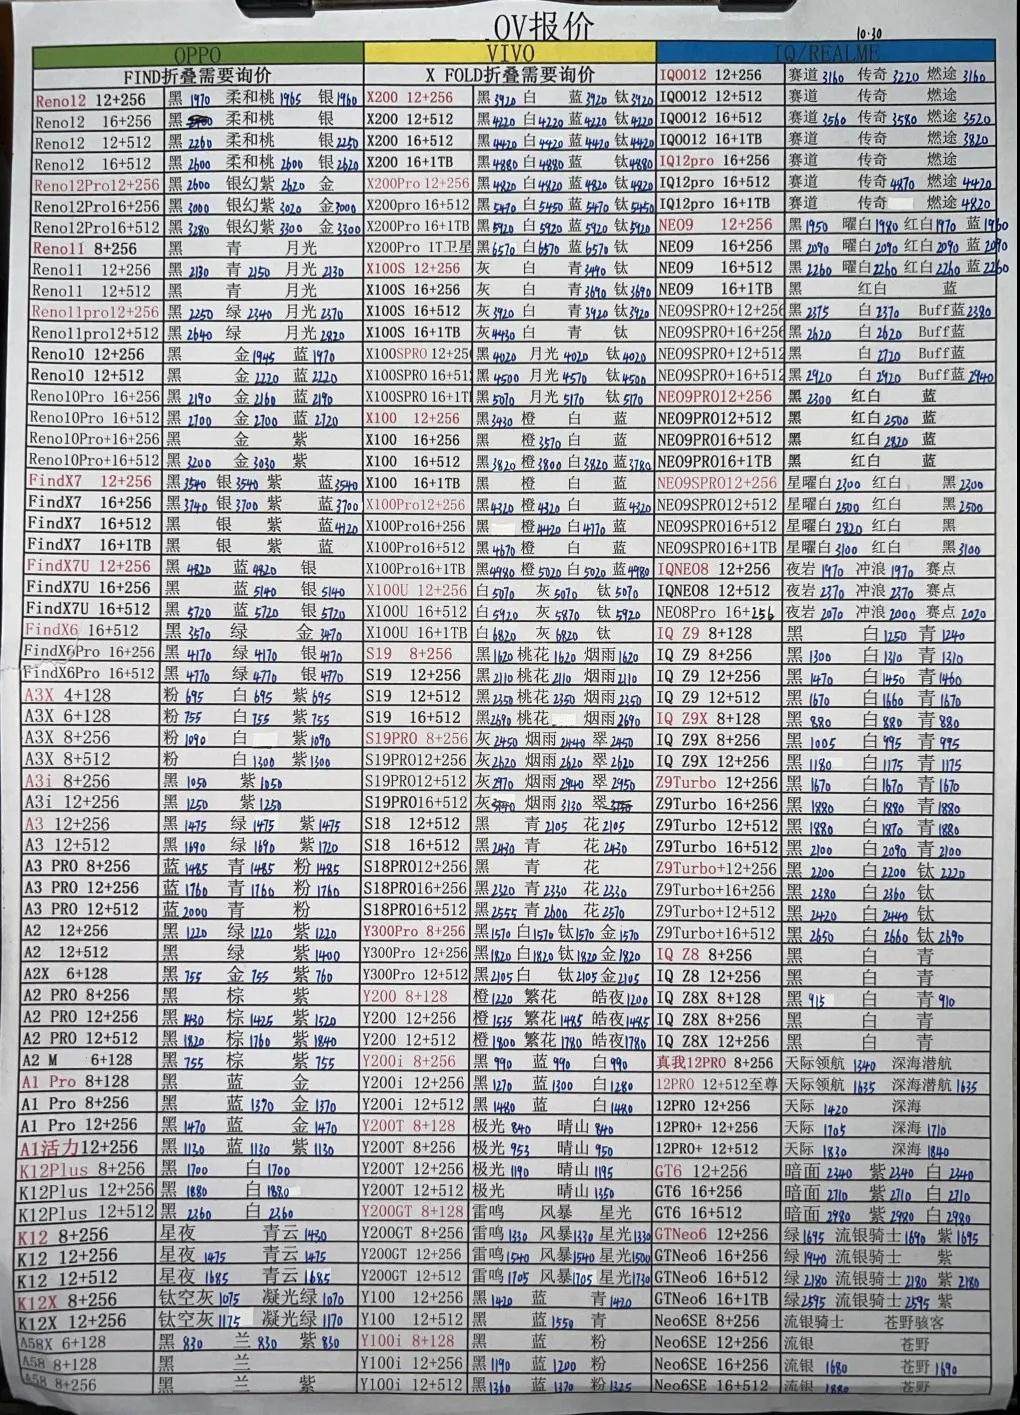 OV报价
10.30
OPPO
FIND折叠需要询价
Reno12 12+256 黑 1970 柔和桃 1965 银 1960
Reno12 16+256 黑 柔和桃 银
Reno12 12+512 黑 2260 柔和桃 银 2250
Reno12 16+512 黑 2600 柔和桃 2600 银 2620
Reno12Pro12+256 黑 2600 银幻紫 2620 金
Reno12Pro16+256 黑 3000 银幻紫 3020 金 3000
Reno12Pro12+512 黑 3280 银幻紫 3300 金 3300
Reno11 8+256 黑 青 月光
Reno11 12+256 黑 2130 青 2150 月光 2130
Reno11 12+512 黑 青 月光
Reno11pro12+256 黑 2250 绿 2340 月光 2370
Reno11pro12+512 黑 2640 绿 月光 2820
Reno10 12+256 黑 金 1945 蓝 1970
Reno10 12+512 黑 金 2220 蓝 2220
Reno10Pro 16+256 黑 2190 金 2160 蓝 2190
Reno10Pro 16+512 黑 2700 金 2700 蓝 2720
Reno10Pro+16+256 黑 金 紫
Reno10Pro+16+512 黑 3200 金 3030 紫
FindX7 12+256 黑 3540 银 3540 紫 蓝 3540
FindX7 16+256 黑 3740 银 3700 紫 蓝 3700
FindX7 16+512 黑 银 紫 蓝 4120
FindX7 16+1TB 黑 银 紫 蓝
FindX7U 12+256 黑 4820 蓝 4820 银
FindX7U 16+256 黑 蓝 5140 银 5140
FindX7U 16+512 黑 5720 蓝 5720 银 5720
FindX6 16+512 黑 3570 绿 金 3470
FindX6Pro 16+256 黑 4170 绿 4170 银 4170
FindX6Pro 16+512 黑 4770 绿 4770 银 4770
A3X 4+128 粉 695 白 695 紫 695
A3X 6+128 粉 755 白 755 紫 755
A3X 8+256 粉 1090 白 紫 1090
A3X 8+512 粉 白 1300 紫 1300
A3i 8+256 黑 1050 紫 1050
A3i 12+256 黑 1250 紫 1250
A3 12+256 黑 1475 绿 1475 紫 1475
A3 12+512 黑 1690 绿 1690 紫 1720
A3 PRO 8+256 蓝 1485 青 1485 粉 1485
A3 PRO 12+256 蓝 1760 青 1760 粉 1760
A3 PRO 12+512 蓝 2000 青 粉
A2 12+256 黑 1220 绿 1220 紫 1220
A2 12+512 黑 绿 紫 1400
A2X 6+128 黑 755 金 755 紫 760
A2 PRO 8+256 黑 棕 紫
A2 PRO 12+256 黑 1430 棕 1425 紫 1520
A2 PRO 12+512 黑 1820 棕 1760 紫 1840
A2 M 6+128 黑 755 棕 紫 755
A1 Pro 8+128 黑 蓝 金
A1 Pro 8+256 黑 蓝 1370 金 1370
A1 Pro 12+256 黑 1470 蓝 金 1470
A1活力12+256 黑 1130 蓝 1130 紫 1130
K12Plus 8+256 黑 1700 白 1700
K12Plus 12+256 黑 1880 白 1880
K12Plus 12+512 黑 2360 白 2360
K12 8+256 星夜 青云 1430
K12 12+256 星夜 1475 青云 1475
K12 12+512 星夜 1685 青云 1685
K12X 8+256 钛空灰 1075 凝光绿 1070
K12X 12+256 钛空灰 1175 凝光绿 1170
A58X 6+128 黑 830 兰 830 紫 830
A58 8+128 黑 兰
A58 8+256 黑 兰 紫
VIVO
X FOLD折叠需要询价
X200 12+256 黑 3920 白 蓝 3920 钛 3920
X200 12+512 黑 4220 白 4220 蓝 4220 钛 4220
X200 16+512 黑 4420 白 4420 蓝 4420 钛 4420
X200 16+1TB 黑 4880 白 4880 蓝 钛 4880
X200Pro 12+256 黑 4820 白 4820 蓝 4820 钛 4820
X200pro 16+512 黑 5470 白 5450 蓝 5470 钛 5450
X200Pro 16+1TB 黑 5920 白 5920 蓝 5920 钛 5920
X200Pro 1T卫星 黑 6570 白 6570 蓝 6570 钛
X100S 12+256 灰 白 青 3490 钛
X100S 16+256 灰 白 青 3690 钛 3690
X100S 16+512 灰 3920 白 青 3920 钛 3920
X100S 16+1TB 灰 4430 白 青 钛
X100SPRO 12+256 黑 4020 月光 4020 钛 4020
X100SPRO 16+512 黑 4500 月光 4570 钛 4500
X100SPRO 16+1T 黑 5070 月光 5170 钛 5170
X100 12+256 黑 3430 橙 白 蓝
X100 16+256 黑 橙 3570 白 蓝
X100 16+512 黑 3820 橙 3800 白 3820 蓝 3780
X100 16+1TB 黑 橙 白 蓝
X100Pro12+256 黑 4320 橙 4320 白 蓝 4320
X100Pro16+256 黑 橙 4420 白 4770 蓝
X100Pro16+512 黑 4670 橙 白 蓝
X100Pro16+1TB 黑 4980 橙 5020 白 5020 蓝 4980
X100U 12+256 白 5070 灰 5070 钛 5070
X100U 16+512 白 5920 灰 5870 钛 5920
X100U 16+1TB 白 6820 灰 6820 钛
S19 8+256 黑 1620 桃花 1620 烟雨 1620
S19 12+256 黑 2110 桃花 2110 烟雨 2110
S19 12+512 黑 2350 桃花 2350 烟雨 2350
S19 16+512 黑 2690 桃花 烟雨 2690
S19PRO 8+256 灰 2450 烟雨 2440 翠 2450
S19PRO12+256 灰 2620 烟雨 2620 翠 2620
S19PRO12+512 灰 2970 烟雨 2940 翠 2950
S19PRO16+512 灰 烟雨 3130 翠
S18 12+512 黑 青 2105 花 2105
S18 16+512 黑 2430 青 花 2430
S18PRO12+256 黑 青 花
S18PRO16+256 黑 2320 青 2330 花 2330
S18PRO16+512 黑 2555 青 2600 花 2570
Y300Pro 8+256 黑 1570 白 1570 钛 1570 金 1570
Y300Pro 12+256 黑 1820 白 1820 钛 1820 金 1820
Y300Pro 12+512 黑 2105 白 钛 2105 金 2105
Y200 8+128 橙 1220 繁花 皓夜 1200
Y200 12+256 橙 1535 繁花 1485 皓夜 1485
Y200 12+512 橙 1800 繁花 1780 皓夜 1780
Y200i 8+256 黑 990 蓝 990 白 990
Y200i 12+256 黑 1270 蓝 1300 白 1280
Y200i 12+512 黑 1480 蓝 白 1480
Y200T 8+128 极光 840 晴山 840
Y200T 8+256 极光 953 晴山 950
Y200T 12+256 极光 1190 晴山 1195
Y200T 12+512 极光 晴山 1350
Y200GT 8+128 雷鸣 风暴 星光
Y200GT 8+256 雷鸣 1330 风暴 1330 星光 1330
Y200GT 12+256 雷鸣 1540 风暴 1540 星光 1500
Y200GT 12+512 雷鸣 1705 风暴 1705 星光 1730
Y100 12+256 黑 1420 蓝 青 1420
Y100 12+512 黑 蓝 1550 青
Y100i 8+128 黑 蓝 粉
Y100i 12+256 黑 1190 蓝 1200 粉
Y100i 12+512 黑 1360 蓝 1370 粉 1325
IQ/REALME
IQOO12 12+256 赛道 3160 传奇 3220 燃途 3160
IQOO12 12+512 赛道 传奇 燃途
IQOO12 16+512 赛道 3560 传奇 3580 燃途 3520
IQOO12 16+1TB 赛道 传奇 燃途 3820
IQ12pro 16+256 赛道 传奇 燃途
IQ12pro 16+512 赛道 传奇 4870 燃途 4420
IQ12pro 16+1TB 赛道 传奇 燃途 4820
NEO9 12+256 黑 1950 曜白 1980 红白 1970 蓝 1960
NEO9 16+256 黑 2090 曜白 2090 红白 2090 蓝 2090
NEO9 16+512 黑 2260 曜白 2260 红白 2260 蓝 2260
NEO9 16+1TB 黑 红白 蓝
NEO9SPRO+12+256 黑 2375 白 2370 Buff蓝 2380
NEO9SPRO+16+256 黑 2620 白 2620 Buff蓝
NEO9SPRO+12+512 黑 白 2720 Buff蓝
NEO9SPRO+16+512 黑 2920 白 2920 Buff蓝 2940
NEO9PRO12+256 黑 2300 红白 蓝
NEO9PRO12+512 黑 红白 2500 蓝
NEO9PRO16+512 黑 红白 2820 蓝
NEO9PRO16+1TB 黑 红白 蓝
NEO9SPRO12+256 星曜白 2300 红白 黑 2300
NEO9SPRO12+512 星曜白 2500 红白 黑 2500
NEO9SPRO16+512 星曜白 2820 红白 黑
NEO9SPRO16+1TB 星曜白 3100 红白 黑 3100
IQNEO8 12+256 夜岩 1970 冲浪 1970 赛点
IQNEO8 12+512 夜岩 2370 冲浪 2370 赛点
NEO8Pro 16+256 夜岩 2070 冲浪 2000 赛点 2020
IQ Z9 8+128 黑 白 1250 青 1240
IQ Z9 8+256 黑 1300 白 1310 青 1310
IQ Z9 12+256 黑 1470 白 1450 青 1460
IQ Z9 12+512 黑 1670 白 1660 青 1670
IQ Z9X 8+128 黑 880 白 880 青 880
IQ Z9X 8+256 黑 1005 白 995 青 995
IQ Z9X 12+256 黑 1180 白 1175 青 1175
Z9Turbo 12+256 黑 1670 白 1670 青 1670
Z9Turbo 16+256 黑 1880 白 1880 青 1880
Z9Turbo 12+512 黑 1880 白 1870 青 1880
Z9Turbo 16+512 黑 2100 白 2090 青 2100
Z9Turbo+12+256 黑 2200 白 2200 钛 2220
Z9Turbo+16+256 黑 2380 白 2360 钛
Z9Turbo+12+512 黑 2420 白 2440 钛
Z9Turbo+16+512 黑 2650 白 2660 钛 2690
IQ Z8 8+256 黑 白 青
IQ Z8 12+256 黑 白 青
IQ Z8X 8+128 黑 915 白 青 910
IQ Z8X 8+256 黑 白 青
IQ Z8X 12+256 黑 白 青
真我12PRO 8+256 天际领航 1340 深海潜航
12PRO 12+512至尊 天际领航 1635 深海潜航 1635
12PRO 12+256 天际 1420 深海
12PRO+ 12+256 天际 1705 深海 1710
12PRO+ 12+512 天际 1830 深海 1840
GT6 12+256 暗面 2340 紫 2340 白 2340
GT6 16+256 暗面 2710 紫 2710 白 2710
GT6 16+512 暗面 2980 紫 2980 白 2980
GTNeo6 12+256 绿 1695 流银骑士 1690 紫 1695
GTNeo6 16+256 绿 1940 流银骑士 紫
GTNeo6 16+512 绿 2180 流银骑士 2180 紫 2180
GTNeo6 16+1TB 绿 2595 流银骑士 2595 紫
Neo6SE 8+256 流银骑士 苍野骇客
Neo6SE 12+256 流银 苍野
Neo6SE 16+256 流银 1680 苍野 1690
Neo6SE 16+512 流银 1880 苍野